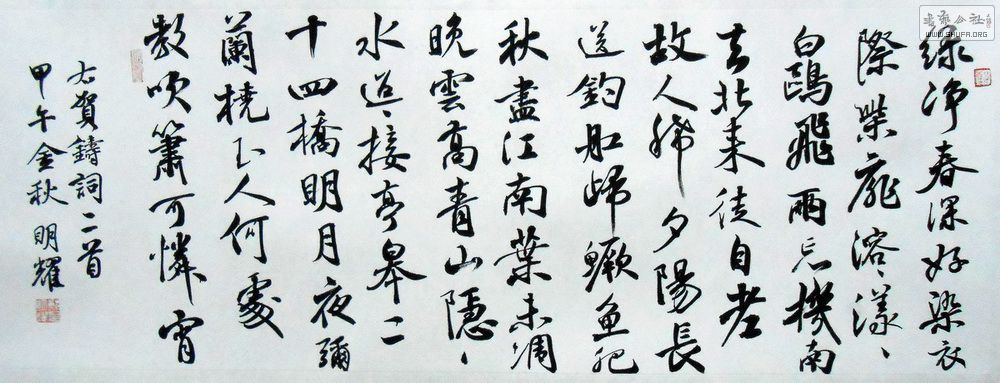 綠净春深好染衣
際柴扉溶々漾々
白鷗飛兩忘機南
去北来徒自老
故人稀夕陽長
送釣船歸鱖魚肥
秋盡江南葉未凋
晚雲高青山隱々
水迢々接亭皋二
十四橋明月夜彌
蘭橈玉人何處
教吹簫可憐宵
右賀鑄詞二首
甲午金秋 明耀
書藝公社
WWW.SHUFA.ORG